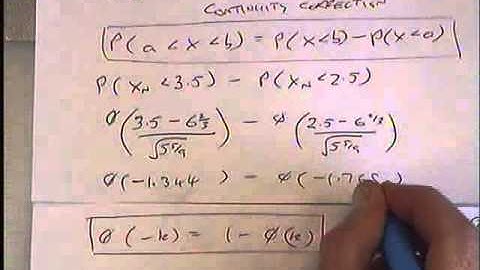 CONTINUITY CORRECTION
P(a < x < b) = P(x < b) - P(x < a)
P(X_N < 3.5) - P(X_N < 2.5)
Ø((3.5 - 6 2/3)/√(5 5/9)) - Ø((2.5 - 6 2/3)/√(5 5/9))
Ø(-1.344) - Ø(-1.768)
Ø(-k) = 1 - Ø(k)